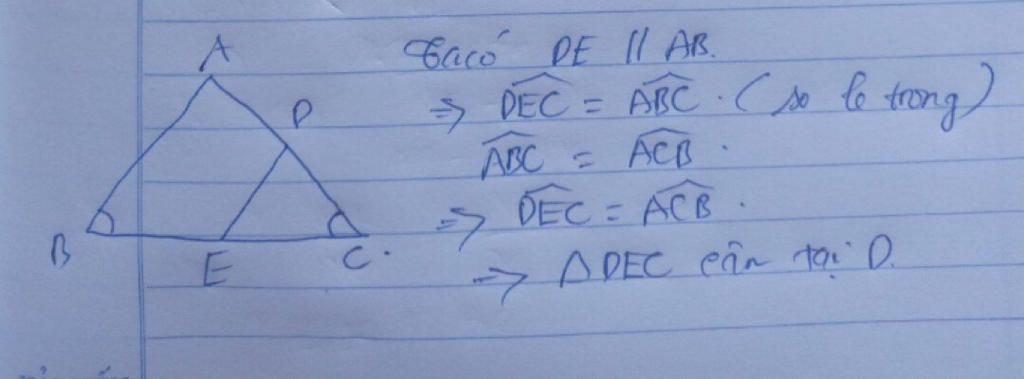 A
D
B
E
C.
Ta có DE // AB.
=> \widehat{DEC} = \widehat{ABC}. (so le trong)
\widehat{ABC} = \widehat{ACB}.
=> \widehat{DEC} = \widehat{ACB}.
=> Δ DEC cân tại D.